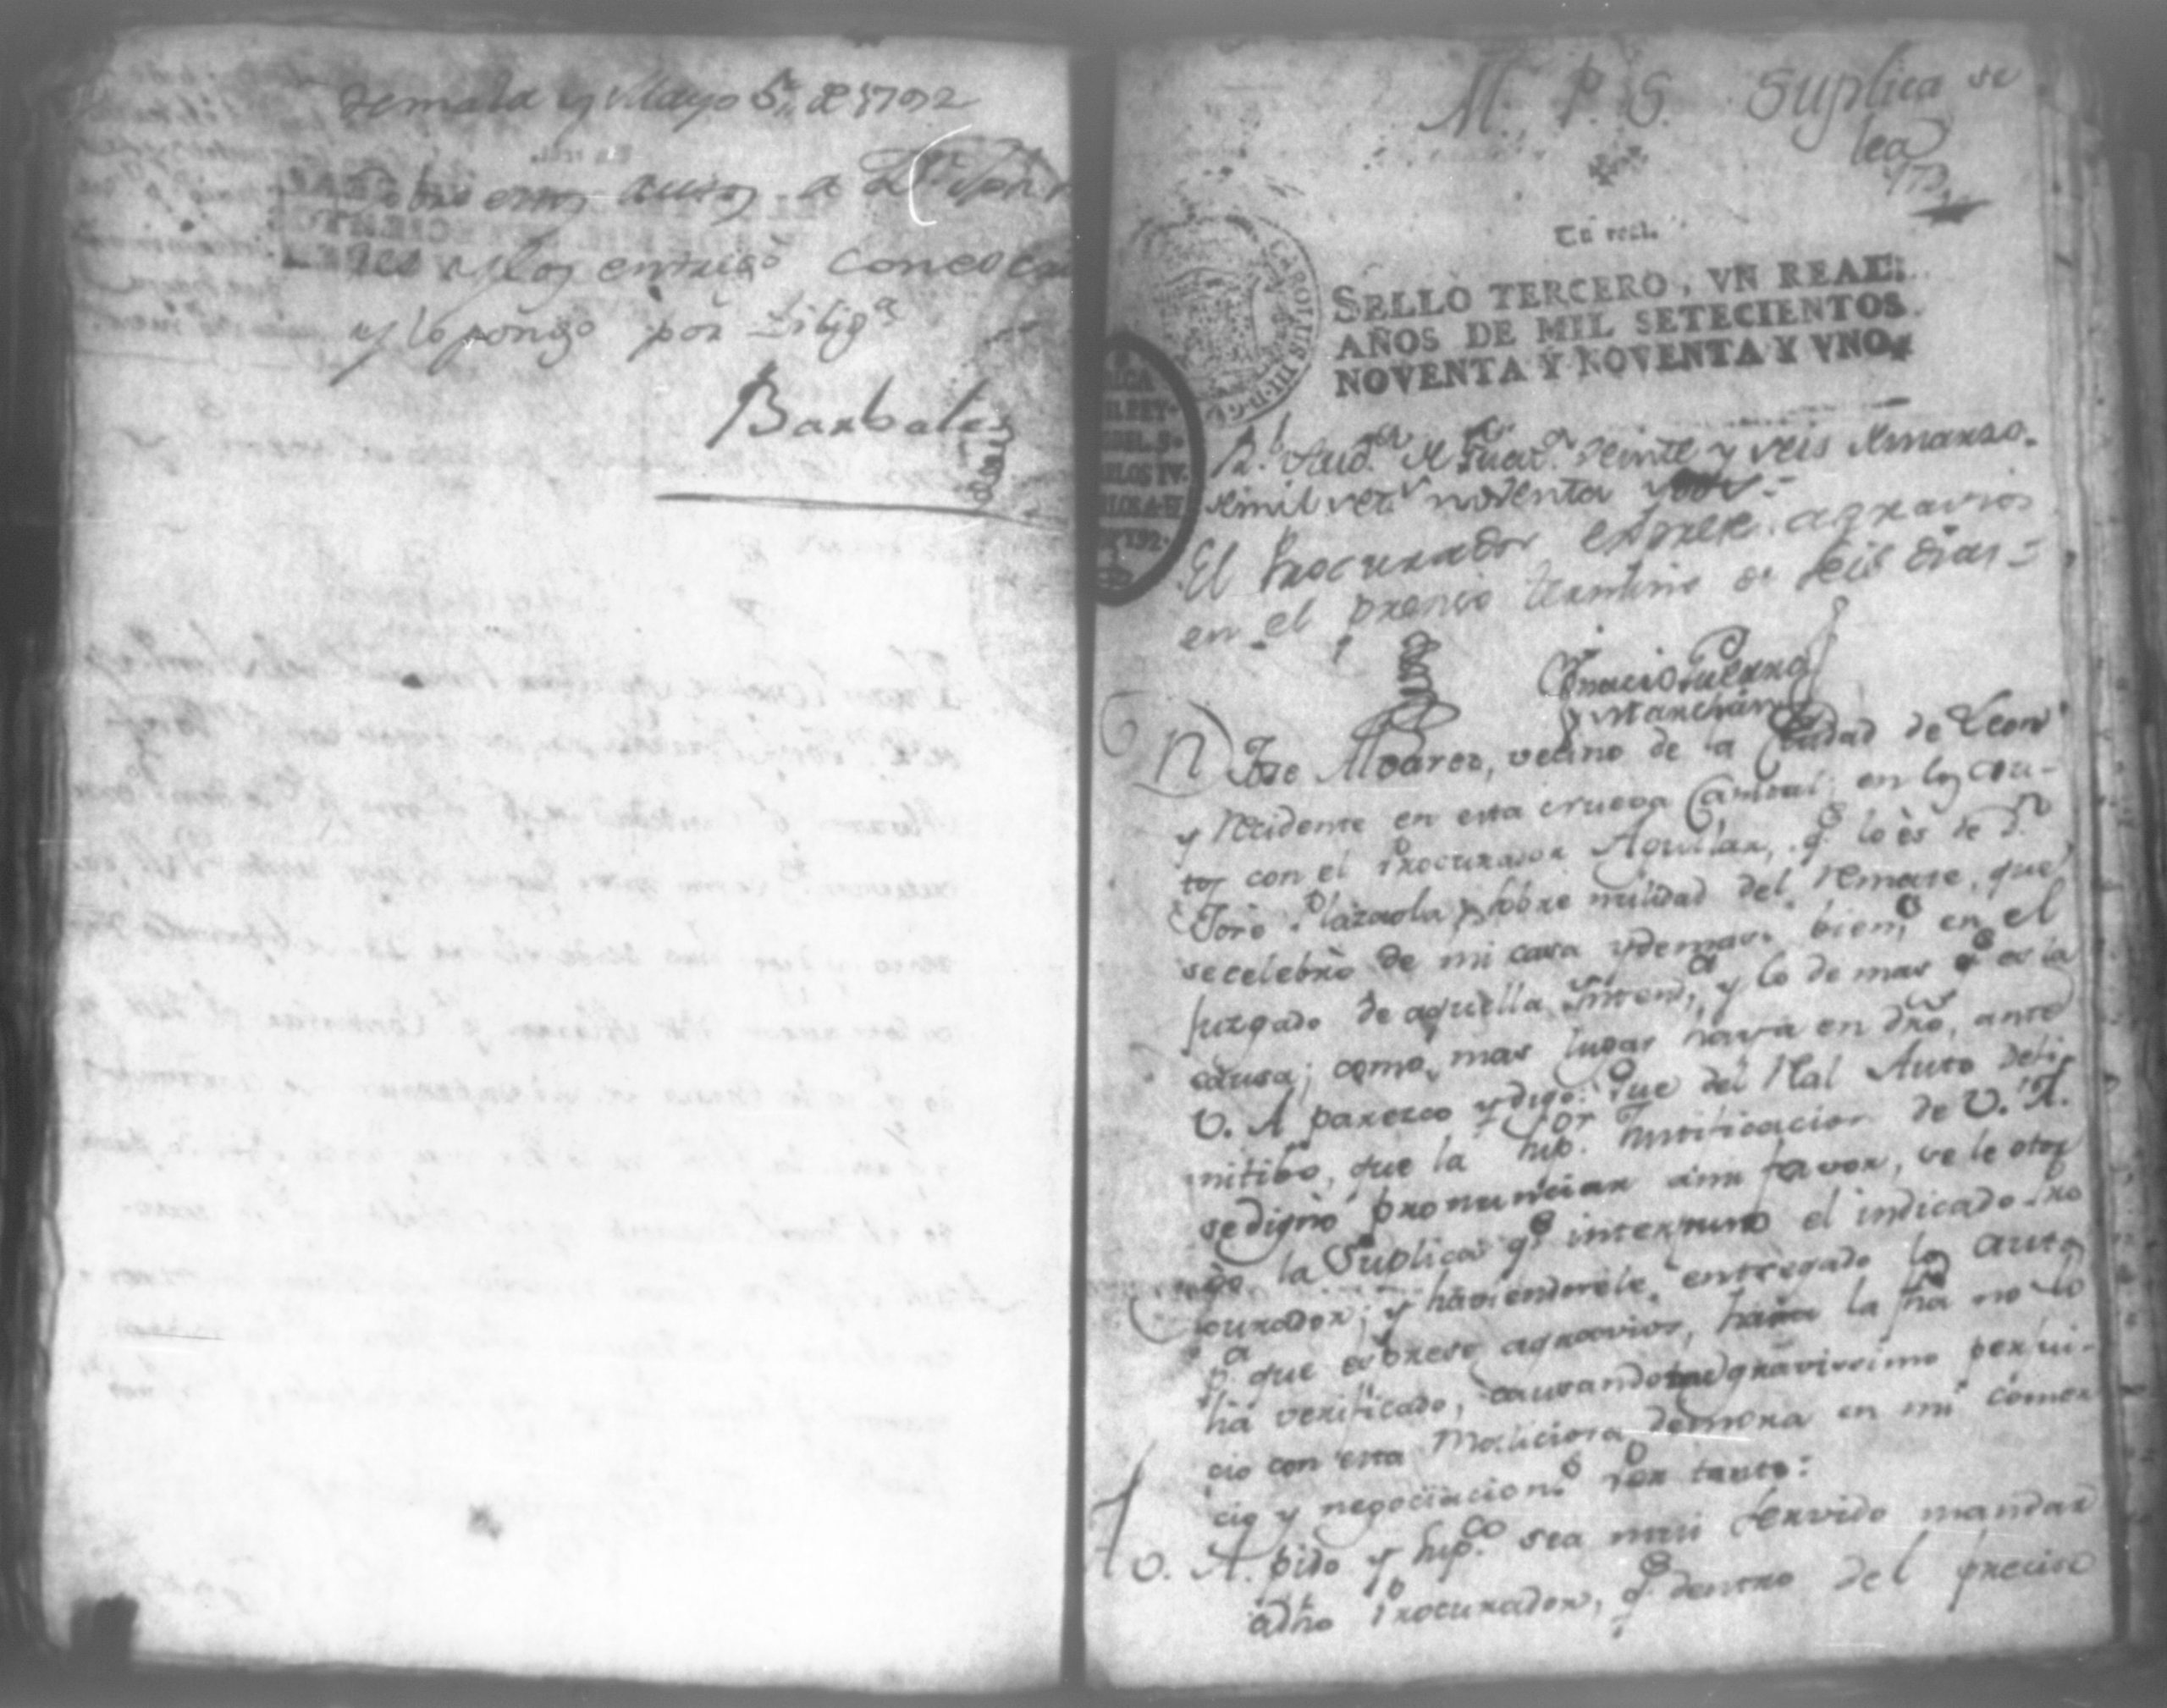 temala y Mayo 5,, de 1792
autos a Dn
y los entregó con
y lo pongo por Diliga
Barbales
M. P. S. Suplica se
lea
Un real.
SELLO TERCERO, VN REAL:
AÑOS DE MIL SETECIENTOS
NOVENTA Y NOVENTA Y VNO.
CAROLUS III D. G.
Rl. Audа de Guata veinte y seis de marzo
de mil sets noventa y dos
El Procurador exprese agravios
en el preciso termino de seis dias
Ignacio Guerra
y Marchán
Dn Jose Alvares, vecino de la Ciudad de Leon
y recidente en esta nueva Capital, en los au-
tos con el Procurador Aguilar, qe lo és de Dn
Toro sobre nulidad del remate, que
se celebró de mi casa y demas biens en el
juzgado de aquella Intenda, y lo de mas qe es la
causa; como mas lugar haya en dro, ante
V. A. parezco y digo: Que del Rl Auto defi-
nitibo, que la Supr justificacion de V. A.
se dignó pronunciar á mi favor, se le otor
gó la Suplica qe interpuso el indicado Pro
curador; y haviendosele entregado los autos
pa que exprese agravios, hasta la fha no lo
há verificado, causandome gravissimo perjui-
cio con esta Maliciosa demora en mi comer
cio y negociacions Por tanto:
A V. A. pido y supco sea mui servido mandar
a dho Procurador, qe dentro del preciso